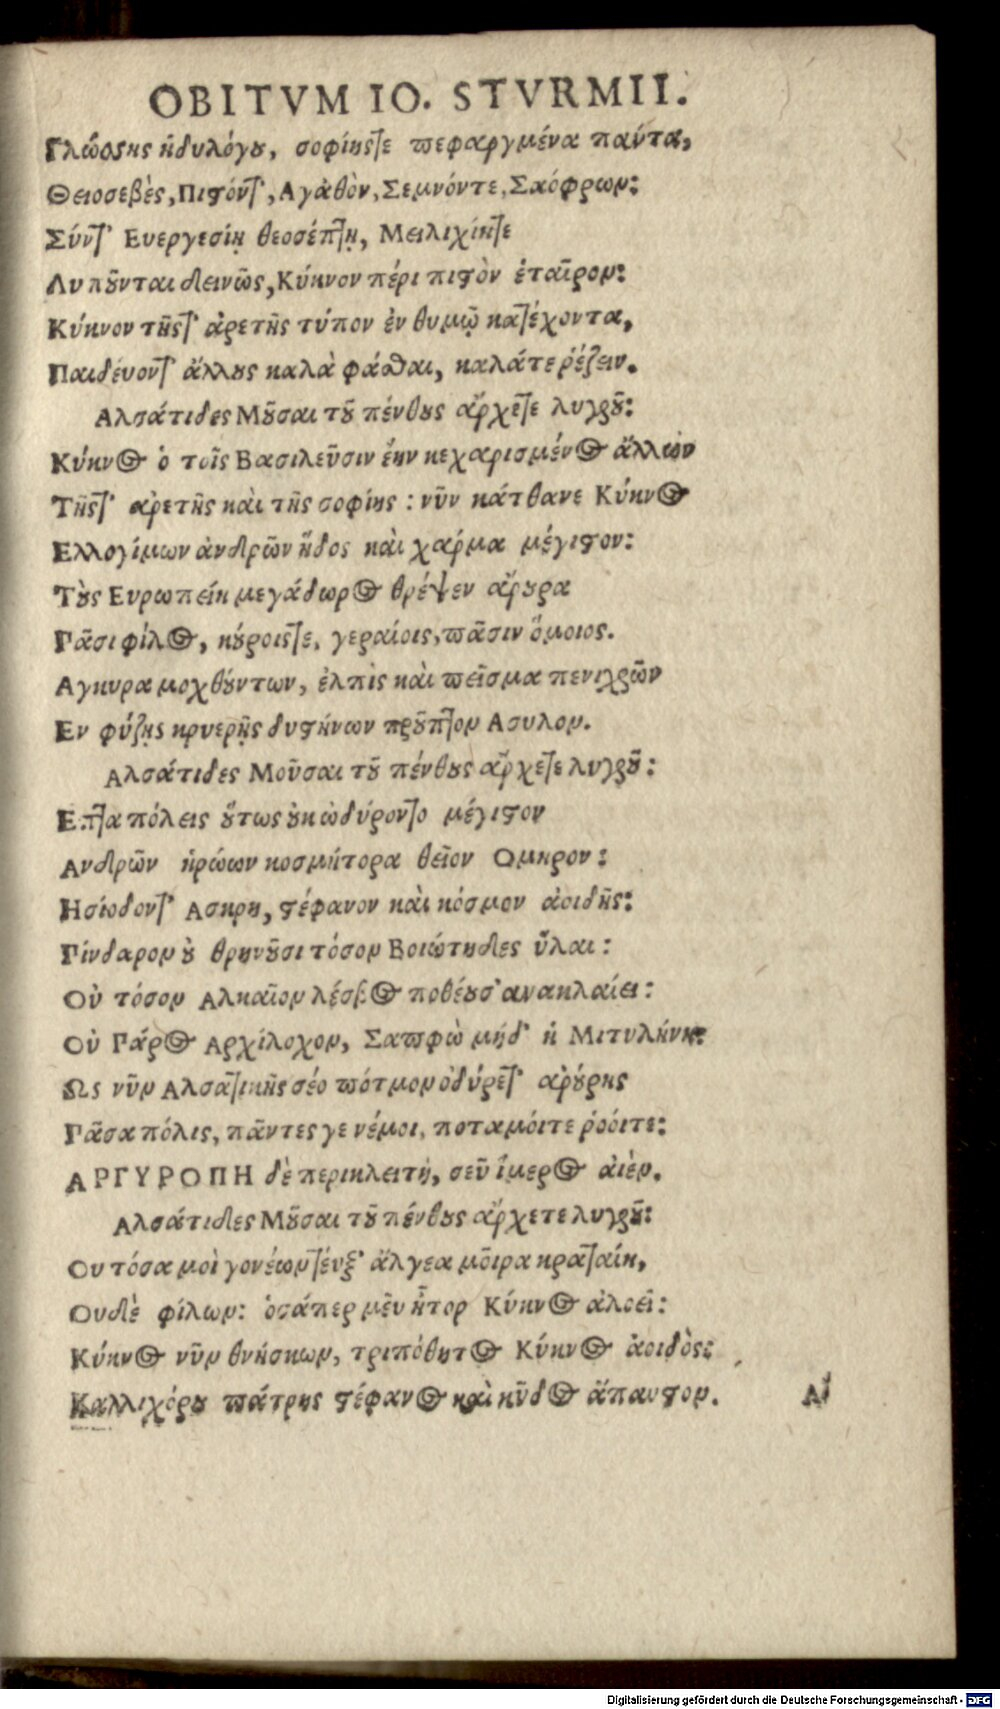 OBITVM IO. STVRMII.
Γλώσσης ἡδυλόγου, σοφίηςτε πεφαργμένα πάντα,
Θειοσεβὲς, Πιστόντ', Αγάθὸν, Σεμνόντε, Σαόφρων:
Σύντ' Ευεργεσίῃ θεοσέπτῃ, Μειλιχίητε
Λυποῦνται δεινῶς, Κύκνον πέρι πιστὸν ἑταῖρον:
Κύκνον τῆςτ' ἀρετῆς τύπον ἐν θυμῷ κατέχοντα,
Παιδέυοντ' ἄλλους καλὰ φάσθαι, καλάτε ῥέζειν.
Αλσάτιδες Μοῦσαι τοῦ πένθους ἄρχετε λυγροῦ:
Κύκνος ὁ τοῖς Βασιλεῦσιν ἔην κεχαρισμένος ἄλλων
Τῆςτ' αρετῆς καὶ τῆς σοφίης: νῦν κάτθανε Κύκνος
Ελλογίμων ἀνδρῶν ἥδος καὶ χάρμα μέγιστον:
Τοὺς Ευρωπείη μεγάδωρος θρέψεν ἄρουρα
Πᾶσι φίλος, κούροιςτε, γεραίοις, πᾶσιν ὅμοιος.
Αγκυρα μοχθούντων, ἐλπὶς καὶ πεῖσμα πενιχρῶν
Εν φύζῃς κρυερῇς δυστήνων προῦπτον Ασυλον.
Αλσάτιδες Μοῦσαι τοῦ πένθους ἄρχετε λυγροῦ:
Επτα πόλεις οὕτως οὐκ ὠδύροντο μέγιστον
Ανδρῶν ἡρώων κοσμήτορα θεῖον Ομηρον:
Ησίοδοντ' Ασκρη, στέφανον καὶ κόσμον ἀοιδῆς:
Πίνδαρον οὐ θρηνοῦσι τόσον Βοιώτηδες ὕλαι:
Οὐ τόσον Αλκαῖον λέσβος ποθέουσ' ανακλαίει:
Οὐ Πάρος Αρχίλοχον, Σαπφὼ μήδ' ἡ Μιτυλήνη:
Ως νῦν Αλσατικῆς σέο πότμον ὀδύρετ' αρούρης
Πᾶσα πόλις, πᾶντες γε νέμοι, ποταμόιτε ῥόοιτε:
ΑΡΓΥΡΟΠΗ δὲ περικλειτή, σεῦ ἵμερος ἀιὲν.
Αλσάτιδες Μοῦσαι τοῦ πένθους ἄρχετε λυγροῦ:
Ου τόσα μοὶ γονέων τένξ' ἄλγεα μοῖρα κραταίη,
Ουδὲ φίλων: ὁσάπερ μεῦ ἦτορ Κύκνος ἀλσεῖ:
Κύκνος νῦν θνήσκων, τριπόθητος Κύκνος ἀοιδὸς:
Καλλιχόρου πάτρης στέφανος καὶ κῦδος ἄπαυστον.
Αἰ
Digitalisierung gefördert durch die Deutsche Forschungsgemeinschaft - DFG